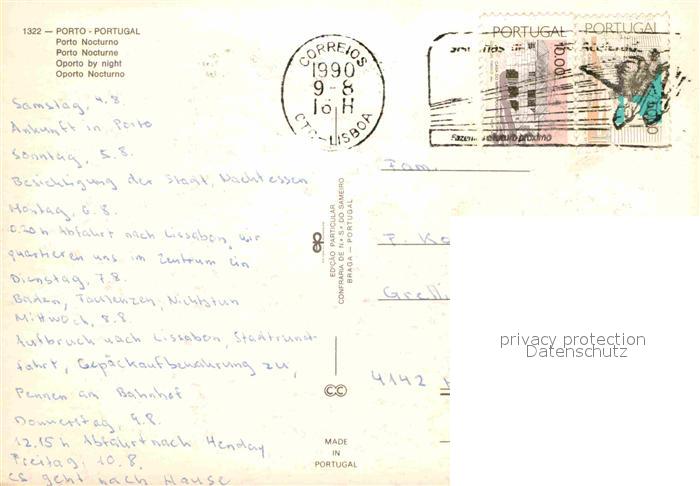 1322 — PORTO - PORTUGAL
Porto Nocturno
Porto Nocturne
Oporto by night
Oporto Nocturno
Samstag, 4.8.
Ankunft in Porto
Sonntag, 5.8.
Besichtigung der Stadt, Nachtessen
Montag, 6.8.
0.20h Abfahrt nach Lissabon, wir
quartieren uns im Zentrum ein
Dienstag, 7.8.
Baden, Faulenzen, Nichtstun
Mittwoch, 8.8.
Aufbruch nach Lissabon, Stadtrund-
fahrt, Gepäckaufbewahrung zu,
Pennen am Bahnhof
Donnerstag, 9.8.
12.15h Abfahrt nach Henday
Freitag, 10.8.
es geht nach Hause
CORREIOS
1990
9-8
18H
CTC-LISBOA
PORTUGAL
10.00
PORTUGAL
futuro próximo
ep
EDIÇÃO PARTICULAR
CONFRARIA DE N.ª S.ª DO SAMEIRO
BRAGA — PORTUGAL
CC
MADE
IN
PORTUGAL
Fam.
P. Ko
Grelli
4142
privacy protection
Datenschutz